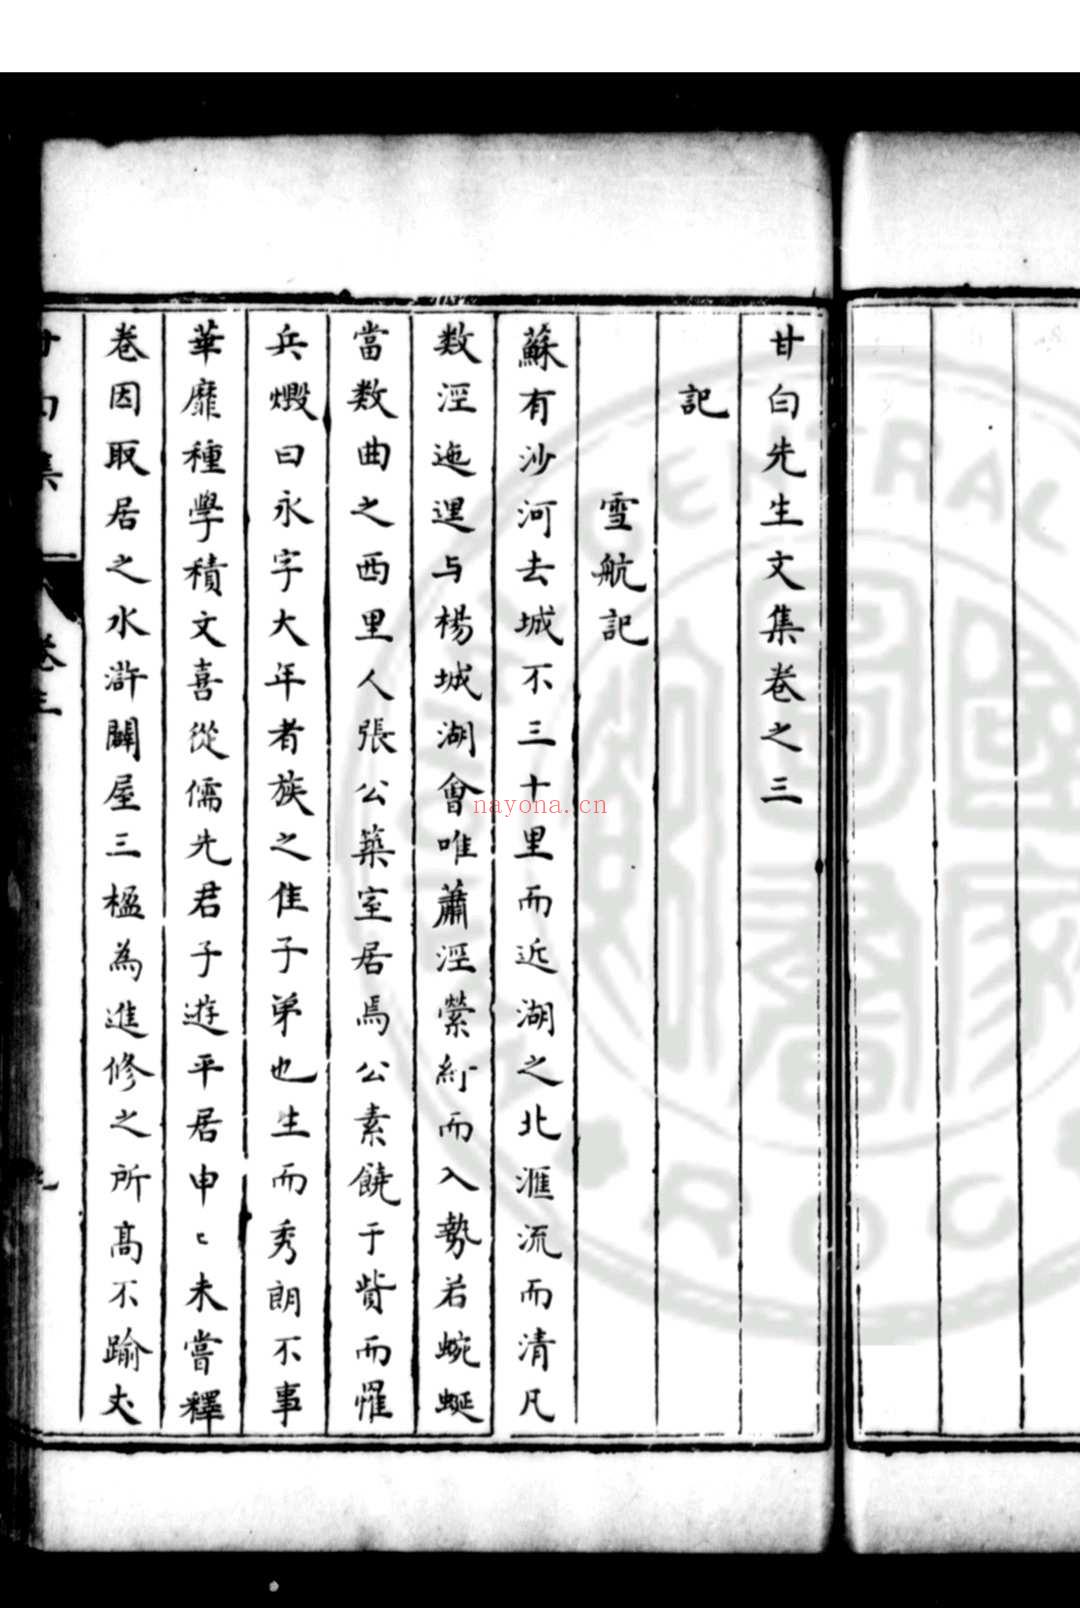 甘白先生文集卷之三
記
雪航記
蘇有沙河去城不三十里而近湖之北滙流而清凡
数涇迤逕与楊城湖會唯蕭涇縈紆而入勢若蜿蜒
當数曲之西里人張公築室居焉公素饒于貲而罹
兵燬曰永字大年者族之隹子弟也生而秀朗不事
華靡種學積文喜從儒先君子遊平居申〻未嘗釋
卷因取居之水滸闢屋三楹為進修之所髙不踰丈
甘白集
卷三
nayona.cn
CENTRAL
ROC